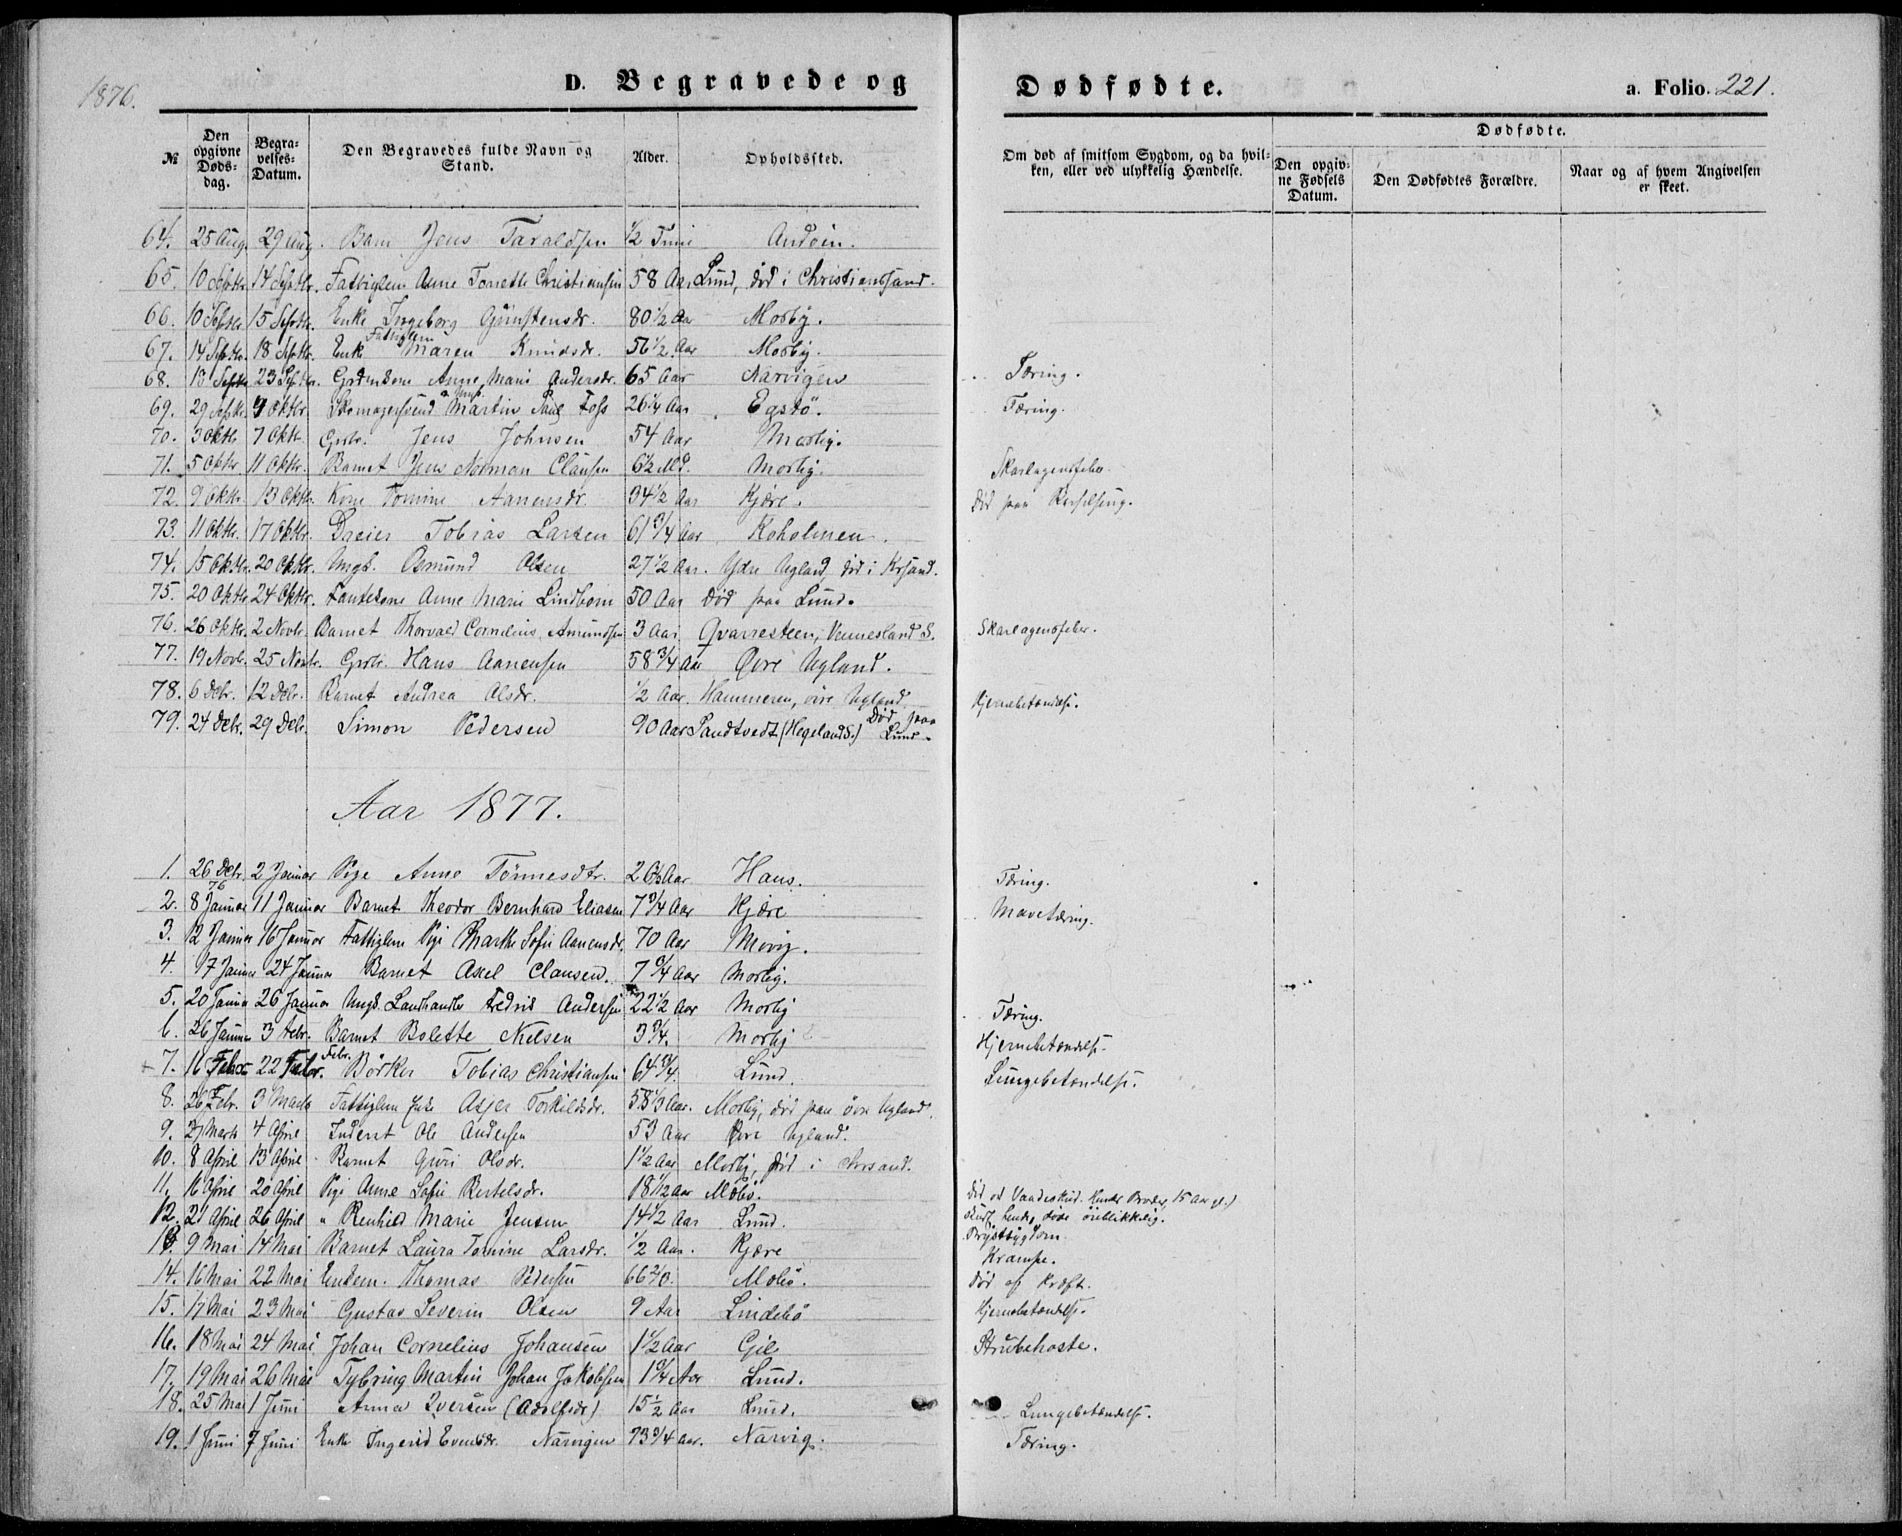 1876.
D. Begravede og Dødfødte.
a. Folio. 221.
№
Den opgivne Døds-dag.
Begra-velses-Datum.
Den Begravedes fulde Navn og Stand.
Alder.
Opholdssted.
Om død af smitsom Sygdom, og da hvil-ken, eller ved ulykkelig Hændelse.
Dødfødte.
Den opgiv-ne Fødsels Datum.
Den Dødfødtes Forældre.
Naar og af hvem Angivelsen er skeet.
64. 25 Aug. 29 Aug. Barn Jens Taraldsen ½ Time Andøin.
65. 10 Septr. 14 Septbr. Fattiglem Anne Tonette Christiansen 58 Aar Lund, død i Christianssand.
66. 10 Septr. 15 Septbr. Enke Ingeborg Gunstensdr. 80½ Aar Mosby.
67. 14 Septbr. 18 Septbr. Enke Fattiglem Maren Knudsdr. 56½ Aar Mosby.
68. 18 Septbr. 23 Septbr. Anne Marie Andersdr. 65 Aar Narvigen Tæring.
69. 29 Septbr. 4 Oktbr. Skomagersvend Martin Paul Foss 26¼ Aar Egstø. Tæring.
70. 3 Oktb. 7 Oktb. Grbr. Jens Johnsen 54 Aar Mosby.
71. 5 Oktbr. 11 Oktbr. Barnet Jens Norman Clausen 6½ Md. Mosby. Skarlagensfeber.
72. 9 Oktbr. 13 Oktbr. Kone Tomine Aanensdr. 34½ Aar Kjære. Død paa Barselseng.
73. 11 Oktbr. 17 Oktbr. Dreier Tobias Larsen 61¾ Aar Koholmen.
74. 15 Oktbr. 20 Oktbr. Ungk. Osmund Olsen 27½ Aar. Ydre Ugland, død i Krsand.
75. 20 Oktbr. 24 Oktbr. Fantekone Anne Marie Lindbom 50 Aar Død paa Lund.
76. 26 Oktbr. 2 Novbr. Barnet Thorvald Cornelius Amundsen 3 Aar Qvarresteen, Vennesland S. Skarlagensfeber.
77. 19 Novbr. 25 Novbr. Grbr. Hans Aanensen 58¾ Aar Øvre Ugland.
78. 6 Debr. 12 Debr. Barnet Andrea Olsdr. ½ Aar. Hammeren, øvre Ugland Hjernebetændelse.
79. 24 Debr. 29 Debr. Simon Pedersen 90 Aar Sandtvedt (Hegeland S.) Død paa Lund.
Aar 1877.
1. 26 Debr. 76 2 Januar Pige Anne Tønnesdtr. Aar Haus. Tæring.
2. 8 Januar 11 Januar Barnet Theodor Bernhard Eliasen 7¾ Aar Kjære Mavetæring.
3. 12 Januar 16 Januar Fattiglem Pige Marthe Sofie Aanensdr. 70 Aar Movig.
4. 17 Januar 24 Januar Barnet Axel Clausen. Aar Mosby.
5. 20 Januar 26 Januar Ungk. Landhandler Fedrik Andersen 22½ Aar Mosby Tæring.
6. 26 Januar 3 Febr. Barnet Bolette Nielsen 3¾. Mosby Hjernebetændelse.
7. 16 Febr 22 Febr. Febr. Bøtker Tobias Christiansen 64¾. Lund. Lungebetændelse.
8. 26 Febr. 3 Marts Fattiglem Enke Asjer Torkildsdr. 58⅓ Aar. Mosby, død paa øvre Ugland.
9. Marts 4 April Inderst Ole Andersen 53 Aar Øvre Ugland.
10. 8 April 13 April Barnet Guri Olsdr. 1½ Aar Mosby, død i Chrsand.
11. 16 April 20 April Pige Anne Sofie Bertelsdr. 18½ Aar Mebø. Død ved Vaadeskud. Hendes Broder, 15 Aar gl.) skudt hende, døde øieblikkelig.
12. 21 April 26 April " Renhild Marie Jensen 14½ Aar Lund. Brystsygdom.
13. 9 Mai 14 Mai Barnet Laura Tomine Larsdr. ½ Aar. Kjære Krampe.
14. 16 Mai 22 Mai Enkem. Thomas Pedersen Mebø. Død af Kræft.
15. 17 Mai 23 Mai Gustav Severin Olsen 9 Aar Lindebø Hjernebetændelse.
16. 18 Mai 24 Mai Johan Cornelius Johansen 1½ Aar Gile Strubehoste.
17. 19 Mai 26 Mai Tybring Martin Johan Jakobsen 1¾ Aar Lund.
18. 25 Mai 1 Juni Anna Iversen (Adolfsdr) 15½ Aar Lund. Lungebetændelse.
19. 1 Juni 7 Juni Enke Ingerid Evensdr. Narvigen 73¾ Aar. Narvig. Tæring.